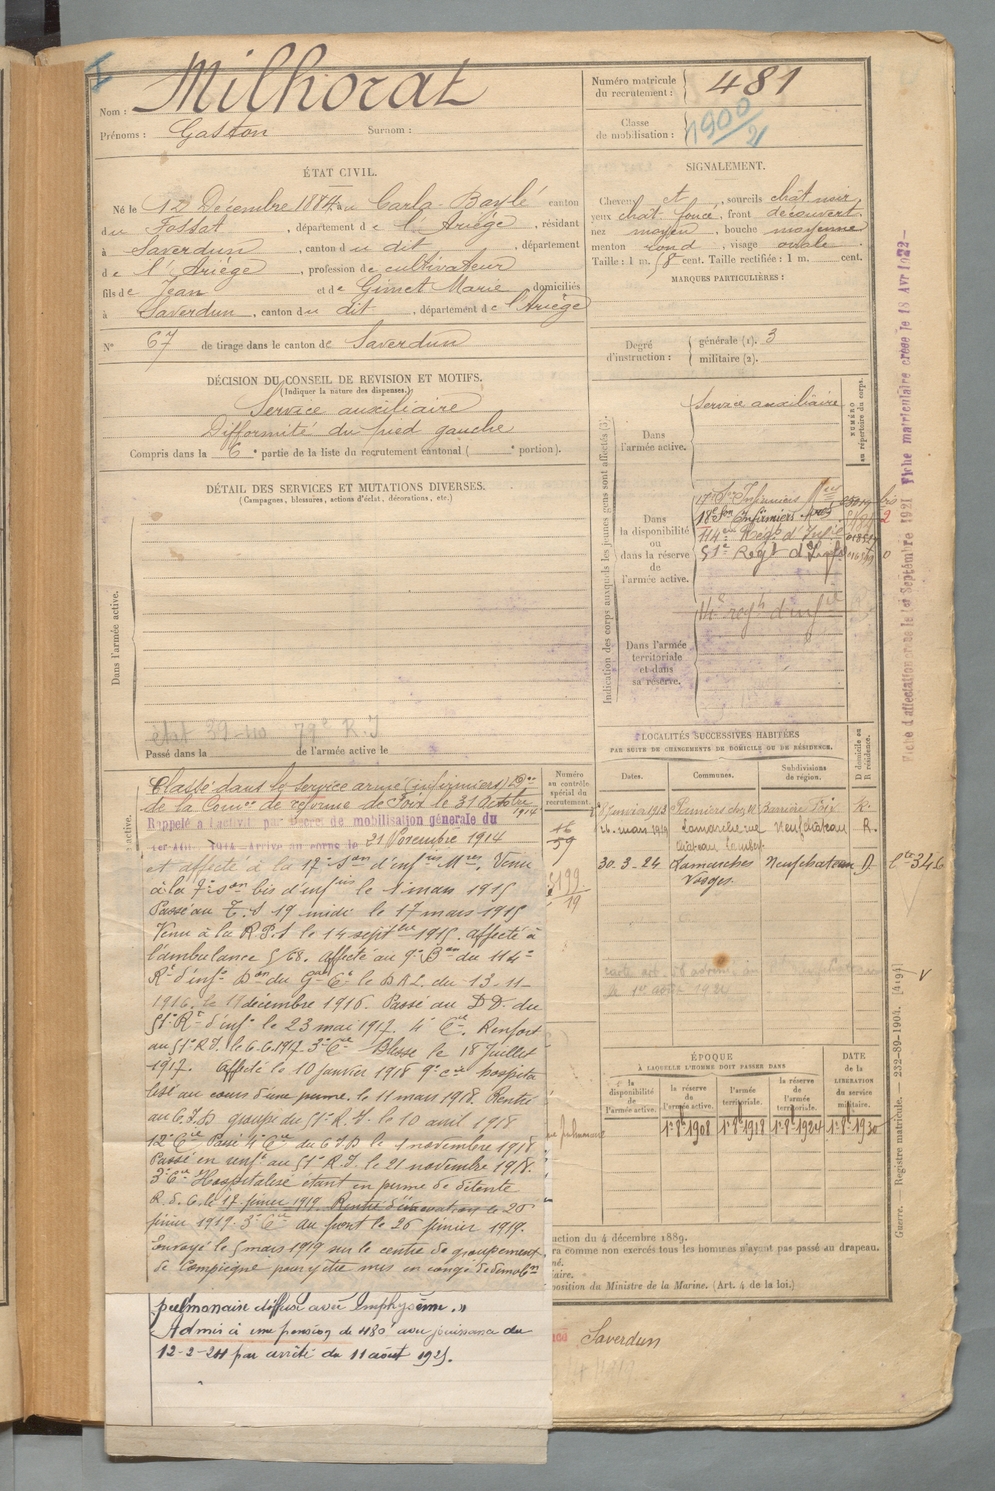 Nom : Milhorat
Prénoms : Gaston Surnom :
Numéro matricule du recrutement : 481
Classe de mobilisation : 1900/21
ÉTAT CIVIL.
Né le 12 Décembre 1884, au Carla-Baylé canton
du Fossat, département de l'Ariège, résidant
à Saverdun, canton du dit, département
de l'Ariège, profession de cultivateur
fils de Jean et de Gimet Marie, domiciliés
à Saverdun, canton du dit, département de l'Ariège
N° 67 de tirage dans le canton de Saverdun
SIGNALEMENT.
Cheveux et, sourcils chât noir
yeux chât foncé, front découvert,
nez moyen, bouche moyenne
menton rond, visage ovale
Taille : 1 m. 58 cent. Taille rectifiée : 1 m. cent.
MARQUES PARTICULIÈRES :
Degré d'instruction : générale (1). 3
militaire (2).
DÉCISION DU CONSEIL DE REVISION ET MOTIFS.
(Indiquer la nature des dispenses.)
Service auxiliaire
Difformité du pied gauche
Compris dans la 6e partie de la liste du recrutement cantonal ( e portion).
DÉTAIL DES SERVICES ET MUTATIONS DIVERSES.
(Campagnes, blessures, actions d'éclat, décorations, etc.)
Dans l'armée active.
état 39-40 79e R.I
Passé dans la de l'armée active le
Indication des corps auxquels les jeunes gens sont affectés (3).
NUMÉRO au répertoire du corps.
Dans l'armée active.
Service auxiliaire
Dans la disponibilité ou dans la réserve de l'armée active.
17e Son Infirmiers Mres
18e Son Infirmiers Mres
114e Regt d'Infie
51e Regt d'Infie
Dans l'armée territoriale et dans sa réserve.
Classé dans le service armé (infirmiers) Don
de la Comon de réforme de Foix le 31 Octobre 1914
Rappelé à l'activité par décret de mobilisation générale du
1er Août 1914 - Arrivé au corps le 21 Novembre 1914
et affecté à la 17e Son d'infirs Mres. Venu
à la 7e Son bis d'infirs le 1 mars 1915
Passé au T.S 19 midi le 17 mars 1915
Venu à la R.P.S le 14 septbre 1915. Affecté à
l'ambulance 5/68. Affecté au 9e Bon du 114e
Rt d'infie Don du Gal Ct le D.A.L du 13-11-
1916, le 11 décembre 1916. Passé au D.D. du
51e Rt d'infie le 23 mai 1917. 4e Cie. Renfort
au 51e R.I. le 6.6.1917. 3e Cie Blessé le 18 Juillet
1917. Affecté le 10 janvier 1918 9e Cie hospita
lisé au cours d'une perme. le 11 mars 1918. Rentré
au C.I.D groupe du 51e R.I. le 10 avril 1918
12e Cie Passé 4e Cie du C.I.D le 1 novembre 1918
Passé en renft au 51e R.I. le 21 novembre 1918.
3e Cie Hospitalisé étant en perme de détente
R.d.C. le 17 février 1919. Rentré d'évacuation le 26
février 1919. 3e Cie au front le 26 février 1919.
Envoyé le 5 mars 1919 sur le centre de groupement
de Compiègne pour y être mis en congé de démobon
pulmonaire diffuse avec emphysème. »
Admis à une pension de 480f avec jouissance du
12-2-24 par arrêté du 11 août 1925.
Numéro au contrôle spécial du recrutement.
LOCALITÉS SUCCESSIVES HABITÉES
PAR SUITE DE CHANGEMENTS DE DOMICILE OU DE RÉSIDENCE.
Dates. Communes. Subdivisions de région. D domicile ou R résidence.
Janvier 1913 Pamiers R.
26 mars 1919 Lamarche Neufchâteau R.
30.3.24 Lamarches Vosges. Neufchateau D.
ÉPOQUE
À LAQUELLE L'HOMME DOIT PASSER DANS
la disponibilité de l'armée active. la réserve de l'armée active. l'armée territoriale. la réserve de l'armée territoriale.
DATE de la LIBÉRATION du service militaire.
1er 8bre 1908 1er 8bre 1918 1er 8bre 1924 1er 8bre 1930
uction du 4 décembre 1889.
ra comme non exercés tous les hommes n'ayant pas passé au drapeau.
né.
iaire.
position du Ministre de la Marine. (Art. 4 de la loi.)
Saverdun
Fiche d'affectation créée le 1er Septembre 1921 Fiche matriculaire créée le 18 Avr 1922
Guerre. — Registre matricule. — 232-89-1904. [4194]